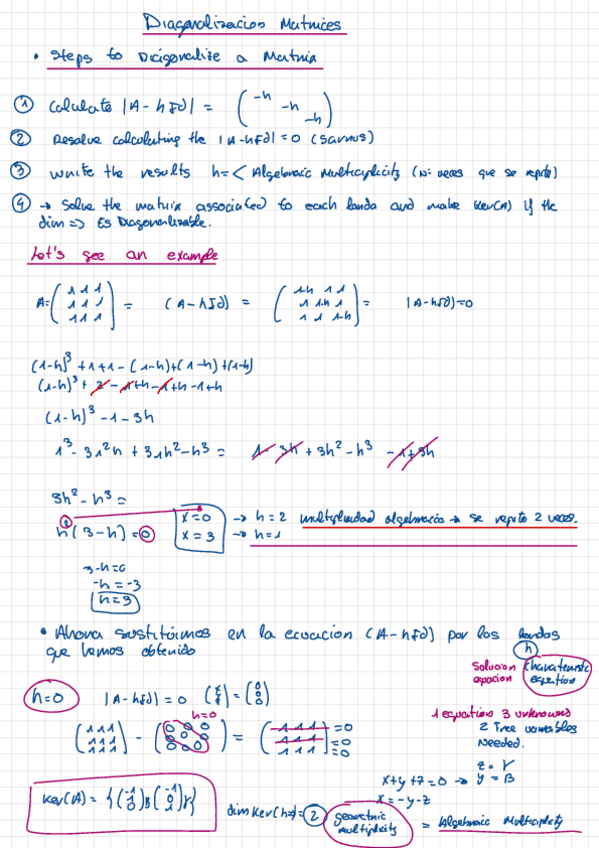 Diagonalizacion Matrices
• Steps to Diagonalize a Matrix
① Calculate |A-hId| = (-h -h -h)
② Resolve calculating the |A-hId|=0 (Sarrus)
③ Write the results h=< Algebraic Multiplicity (Nº veces que se repite)
④ → Solve the matrix associated to each landa and make Ker(A) if the
dim => Es Diagonalizable.
Let's see an example
A=(1 1 1 / 1 1 1 / 1 1 1) = (A-hId) = (1-h 1 1 / 1 1-h 1 / 1 1 1-h) = |A-hId|=0
(1-h)³+1+1-(1-h)+(1-h)+(1-h)
(1-h)³+2-1+h-1+h-1+h
(1-h)³-1-3h
1³-31²h+31h²-h³ = 1-3h+3h²-h³ -1+3h
3h²-h³=
h²(3-h)=0
x=0 → h=2 multiplicidad algebraica → se repite 2 veces.
x=3 → h=1
3-h=0
-h=-3
h=3
• Ahora sustituimos en la ecuacion (A-hId) por los landas
que hemos obtenido (h)
Solucion Characteristic
equation
h=0 |A-hId|=0 (x y z)=(0 0 0)
h=0
(1 1 1 / 1 1 1 / 1 1 1) - (0 0 0 / 0 0 0 / 0 0 0) = (1 1 1 / 1 1 1 / 1 1 1) =0 =0 =0
1 equation 3 unknowns
2 Free variables
Needed.
z=γ
x+y+z=0 → y=β
x=-y-z
Ker(A)={(-1 1 0)β(-1 0 1)γ}
dim Ker(h=0)=2 geometric
multiplicity = Algebraic Multiplicity